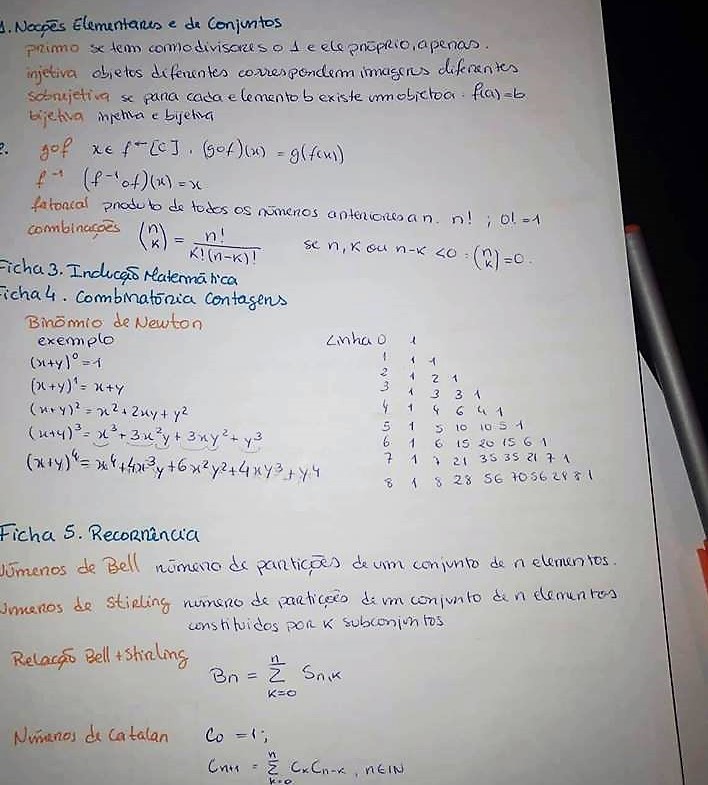 1. Noções Elementares e de Conjuntos
primo se tem como divisores o 1 e ele próprio, apenas.
injetiva objetos diferentes correspondem imagens diferentes
sobrejetiva se para cada elemento b existe um objeto a . f(a) = b
bijetiva injetiva e bijetiva
2. gof x ∈ f⁻[C] . (gof)(x) = g(f(x))
f⁻¹ (f⁻¹of)(x) = x
fatorial produto de todos os números anteriores a n. n! ; 0! = 1
combinações (n k) = n! / k!(n-k)! se n, k ou n-k < 0 : (n k) = 0.
Ficha 3. Indução Matemática
Ficha 4. Combinatória Contagens
Binômio de Newton
exemplo
(x+y)⁰ = 1
(x+y)¹ = x+y
(x+y)² = x² + 2xy + y²
(x+y)³ = x³ + 3x²y + 3xy² + y³
(x+y)⁴ = x⁴ + 4x³y + 6x²y² + 4xy³ + y⁴
Linha 0 1
1 1 1
2 1 2 1
3 1 3 3 1
4 1 4 6 4 1
5 1 5 10 10 5 1
6 1 6 15 20 15 6 1
7 1 7 21 35 35 21 7 1
8 1 8 28 56 70 56 28 8 1
Ficha 5. Recorrência
Números de Bell número de partições de um conjunto de n elementos.
Números de Stirling número de partições de um conjunto de n elementos
constituídos por k subconjuntos
Relação Bell + Stirling
Bn = n Σ k=0 Sn,k
Números de Catalan C0 = 1;
Cn+1 = n Σ k=0 CkCn-k , n∈IN